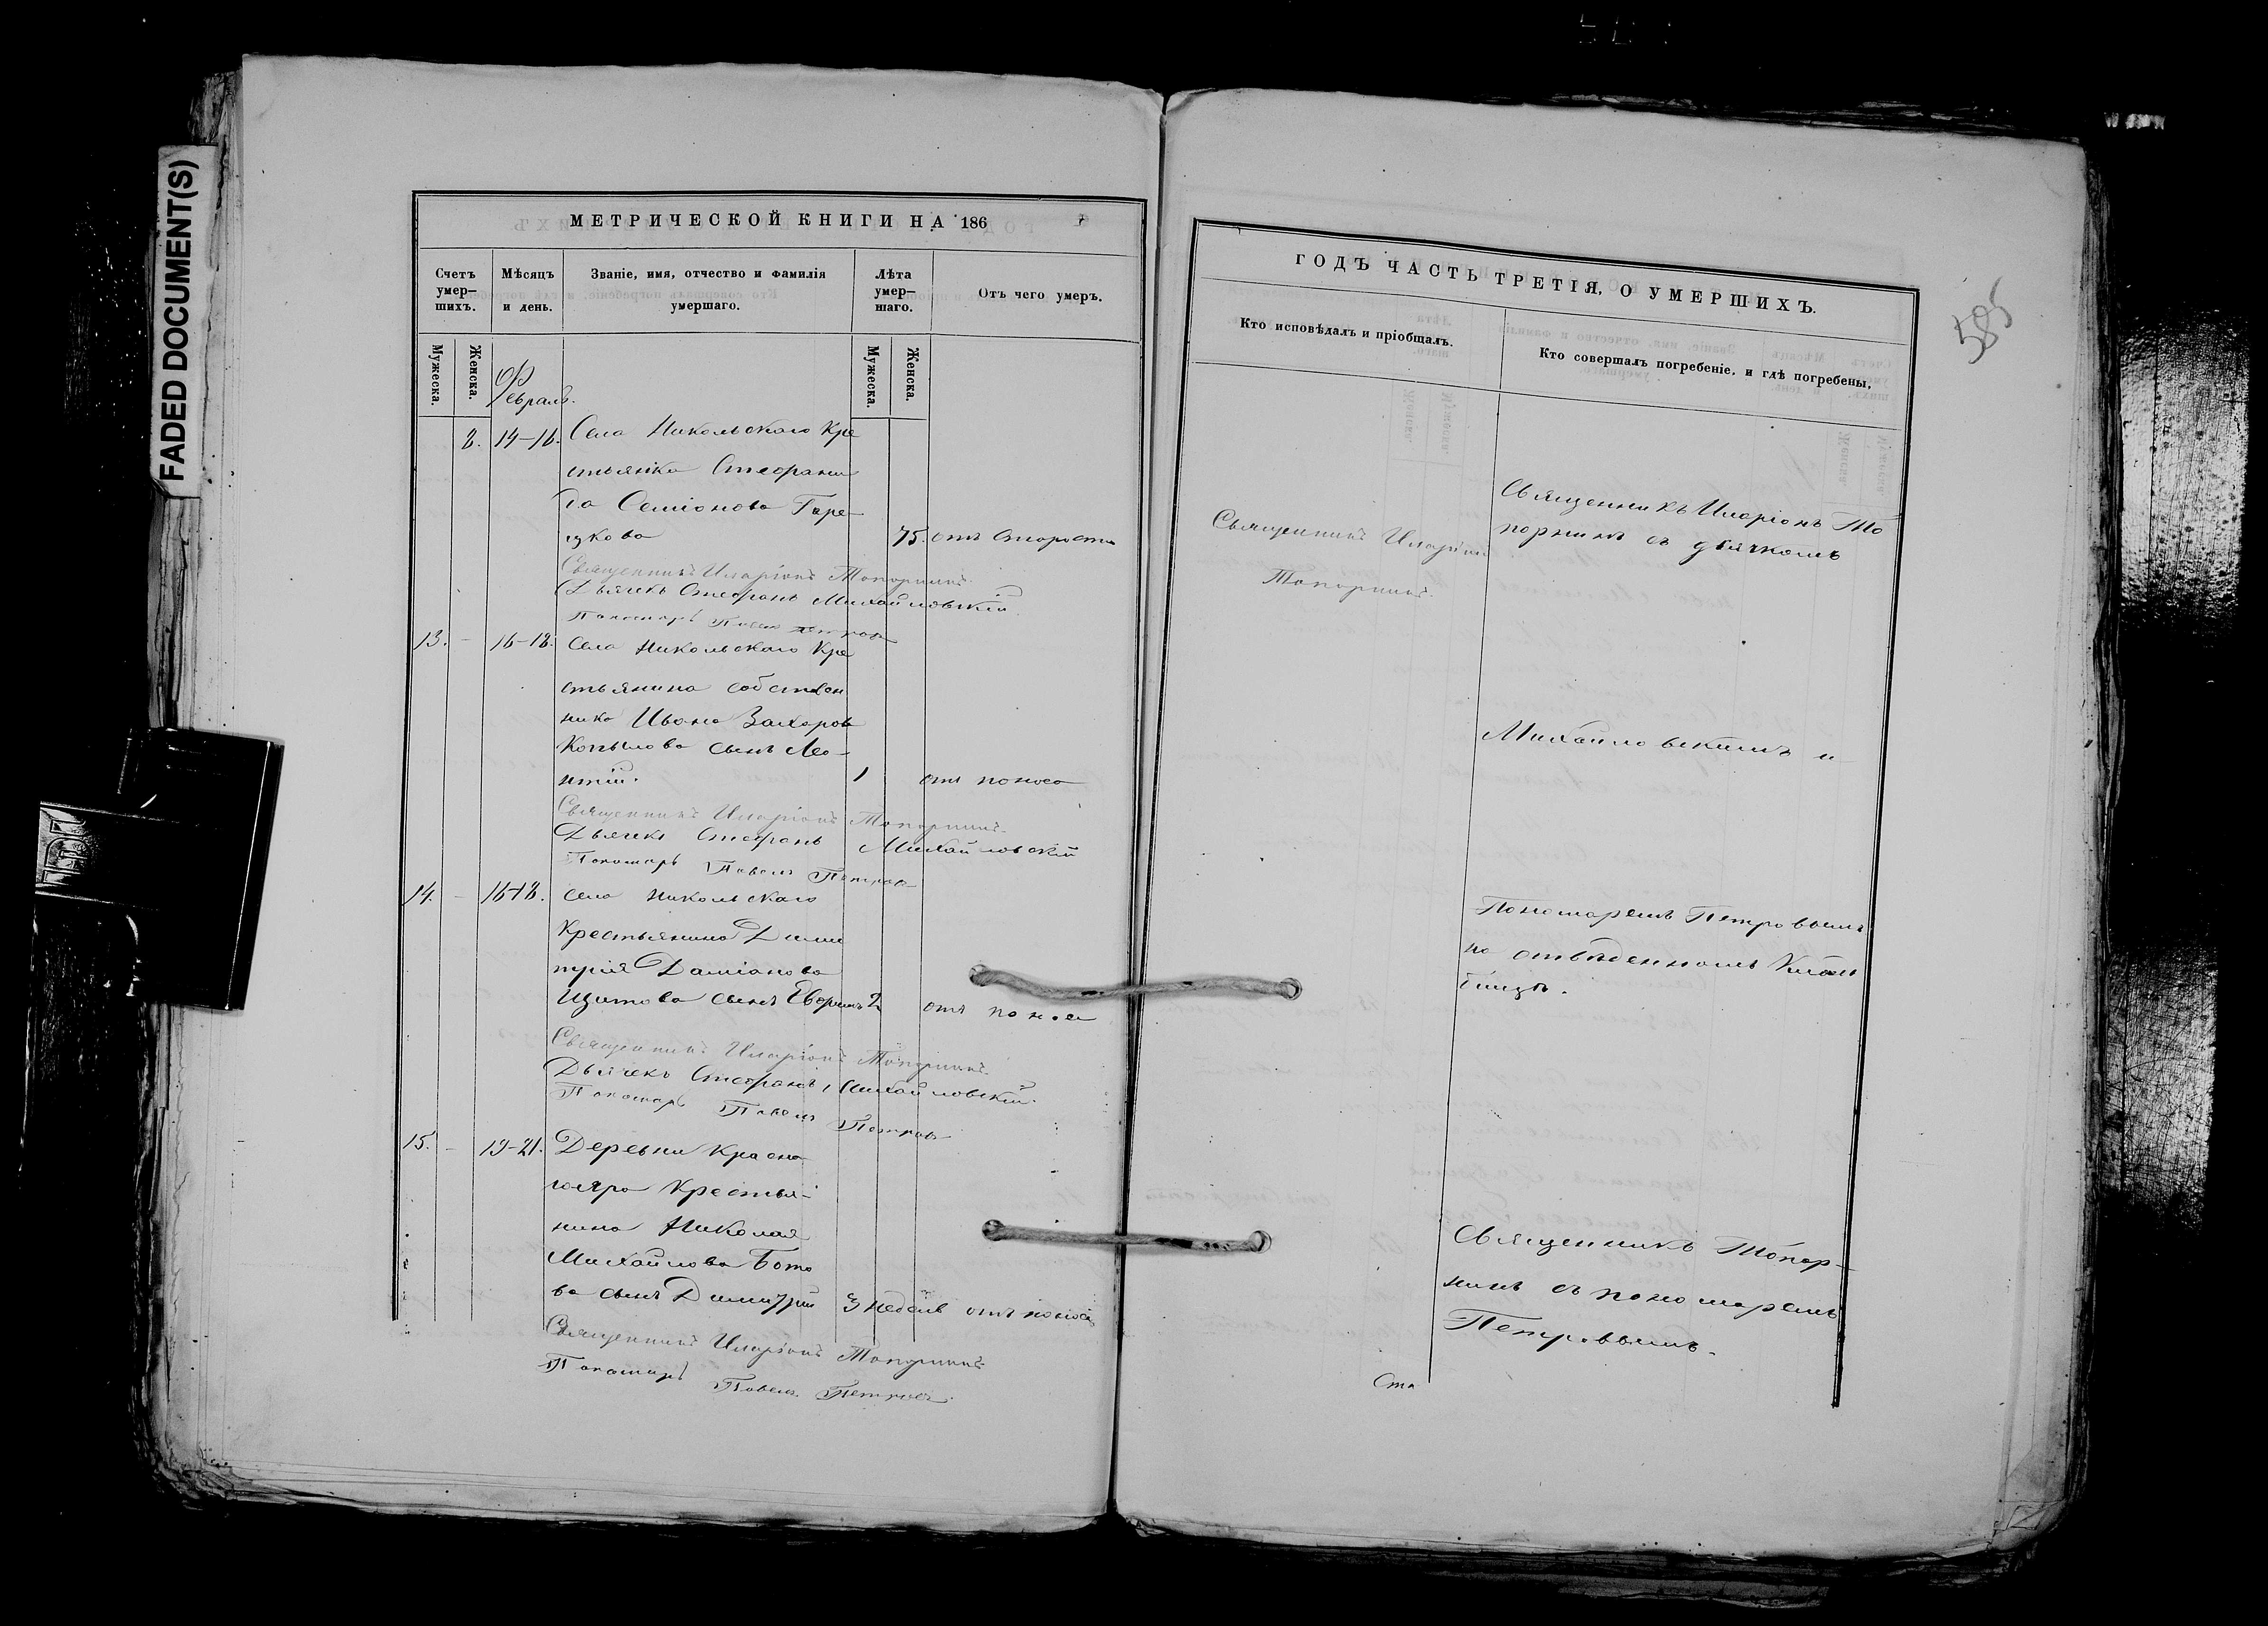 FADED DOCUMENT(S)
МЕТРИЧЕСКОЙ КНИГИ НА 186
Счетъ умер-шихъ.
Мѣсяцъ и день.
Званіе, имя, отчество и фамилія умершаго.
Лѣта умер-шаго.
Отъ чего умеръ.
Мужеска.
Женска.
Мужеска.
Женска.
Февраль.
8. 14-16. Села Никольскаго Кре
стьянка Стефани
да Симіонова
75. отъ старости
Священникъ Иларіонъ Топорнинъ
Дьячекъ Стефанъ Михайловскій
Пономарь Павелъ Петровъ
13. - 16-18. Села Никольскаго Кре
стьянина собствен
ника Ивана Захаров
Копылова сынъ Лео-
нтій. 1 отъ поноса
Священникъ Иларіонъ Топорнинъ
Дьячекъ Стефанъ Михайловскій
Пономарь Павелъ Петровъ
14. - 16-18. Села Никольскаго
Крестьянина Дими
трія Даміанова
сынъ 2 отъ поноса
Священникъ Иларіонъ Топорнинъ
Дьячекъ Стефанъ Михайловскій.
Пономарь Павелъ Петровъ
15. - 19-21. Деревни Красна
гояра Крестья-
нина Николая
Михайлова Бото
ва сынъ Димитрій 3 недѣль отъ поноса
Священникъ Иларіонъ Топорнинъ
Пономарь Павелъ Петровъ.
ГОДЪ ЧАСТЬ ТРЕТІЯ, О УМЕРШИХЪ.
585
Кто исповѣдалъ и пріобщалъ.
Кто совершалъ погребеніе, и гдѣ погребены.
Священникъ Иларіонъ
Топорнинъ.
Священникъ Иларіонъ То
порнинъ съ дьячкомъ
Михайловскимъ и
Пономаремъ Петровымъ
на отведенномъ Клад
бищѣ.
Священникъ Топор-
нинъ съ пономаремъ
Петровымъ.
Ста